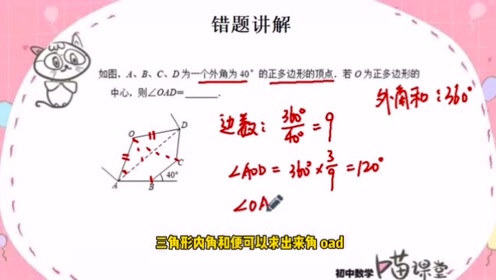 错题讲解
如图，A、B、C、D为一个外角为40°的正多边形的顶点，若O为正多边形的
中心，则∠OAD=______.
外角和：360°
边数：360°/40°=9
∠AOD=360°×3/9=120°
∠OA
O
D
C
A
B
40°
三角形内角和便可以求出来角oad
初中数学
喵课堂